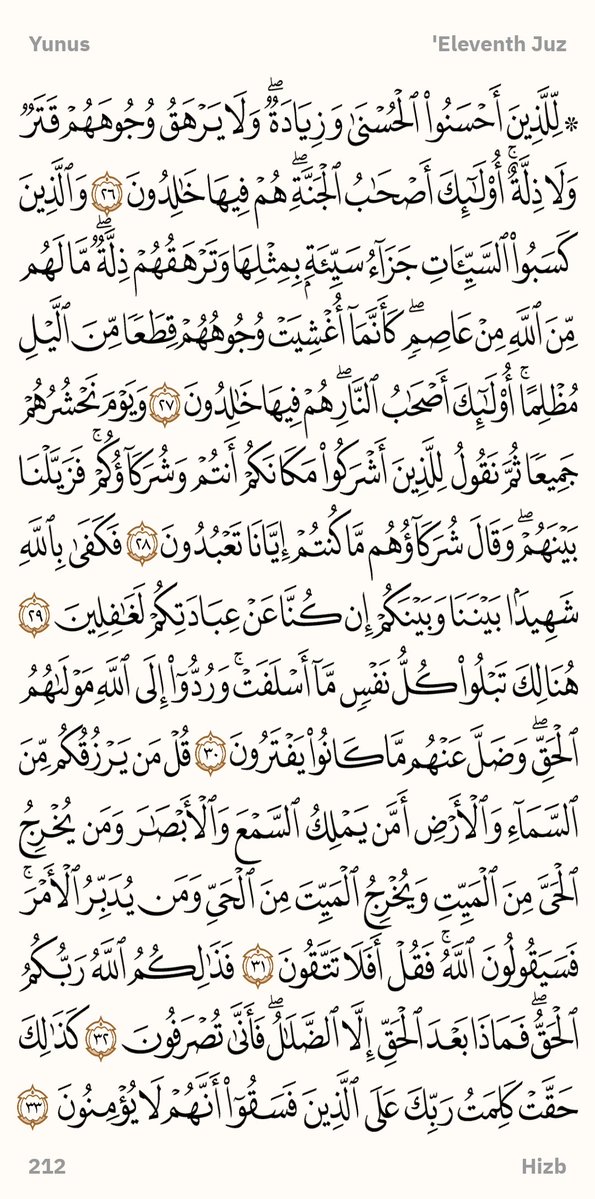 Yunus 'Eleventh Juz
۞ لِّلَّذِينَ أَحْسَنُوا۟ ٱلْحُسْنَىٰ وَزِيَادَةٌۖ وَلَا يَرْهَقُ وُجُوهَهُمْ قَتَرٌ
وَلَا ذِلَّةٌۚ أُو۟لَـٰٓئِكَ أَصْحَـٰبُ ٱلْجَنَّةِۖ هُمْ فِيهَا خَـٰلِدُونَ ٢٦ وَٱلَّذِينَ
كَسَبُوا۟ ٱلسَّيِّـَٔاتِ جَزَآءُ سَيِّئَةٍۭ بِمِثْلِهَا وَتَرْهَقُهُمْ ذِلَّةٌۖ مَّا لَهُم
مِّنَ ٱللَّهِ مِنْ عَاصِمٍۖ كَأَنَّمَآ أُغْشِيَتْ وُجُوهُهُمْ قِطَعًا مِّنَ ٱلَّيْلِ
مُظْلِمًاۚ أُو۟لَـٰٓئِكَ أَصْحَـٰبُ ٱلنَّارِۖ هُمْ فِيهَا خَـٰلِدُونَ ٢٧ وَيَوْمَ نَحْشُرُهُمْ
جَمِيعًا ثُمَّ نَقُولُ لِلَّذِينَ أَشْرَكُوا۟ مَكَانَكُمْ أَنتُمْ وَشُرَكَآؤُكُمْۚ فَزَيَّلْنَا
بَيْنَهُمْۖ وَقَالَ شُرَكَآؤُهُم مَّا كُنتُمْ إِيَّانَا تَعْبُدُونَ ٢٨ فَكَفَىٰ بِٱللَّهِ
شَهِيدًۢا بَيْنَنَا وَبَيْنَكُمْ إِن كُنَّا عَنْ عِبَادَتِكُمْ لَغَـٰفِلِينَ ٢٩
هُنَالِكَ تَبْلُوا۟ كُلُّ نَفْسٍ مَّآ أَسْلَفَتْۚ وَرُدُّوٓا۟ إِلَى ٱللَّهِ مَوْلَىٰهُمُ
ٱلْحَقِّۖ وَضَلَّ عَنْهُم مَّا كَانُوا۟ يَفْتَرُونَ ٣٠ قُلْ مَن يَرْزُقُكُم مِّنَ
ٱلسَّمَآءِ وَٱلْأَرْضِ أَمَّن يَمْلِكُ ٱلسَّمْعَ وَٱلْأَبْصَـٰرَ وَمَن يُخْرِجُ
ٱلْحَىَّ مِنَ ٱلْمَيِّتِ وَيُخْرِجُ ٱلْمَيِّتَ مِنَ ٱلْحَىِّ وَمَن يُدَبِّرُ ٱلْأَمْرَۚ
فَسَيَقُولُونَ ٱللَّهُۚ فَقُلْ أَفَلَا تَتَّقُونَ ٣١ فَذَٰلِكُمُ ٱللَّهُ رَبُّكُمُ
ٱلْحَقُّۖ فَمَاذَا بَعْدَ ٱلْحَقِّ إِلَّا ٱلضَّلَـٰلُۖ فَأَنَّىٰ تُصْرَفُونَ ٣٢ كَذَٰلِكَ
حَقَّتْ كَلِمَتُ رَبِّكَ عَلَى ٱلَّذِينَ فَسَقُوٓا۟ أَنَّهُمْ لَا يُؤْمِنُونَ ٣٣
212 Hizb